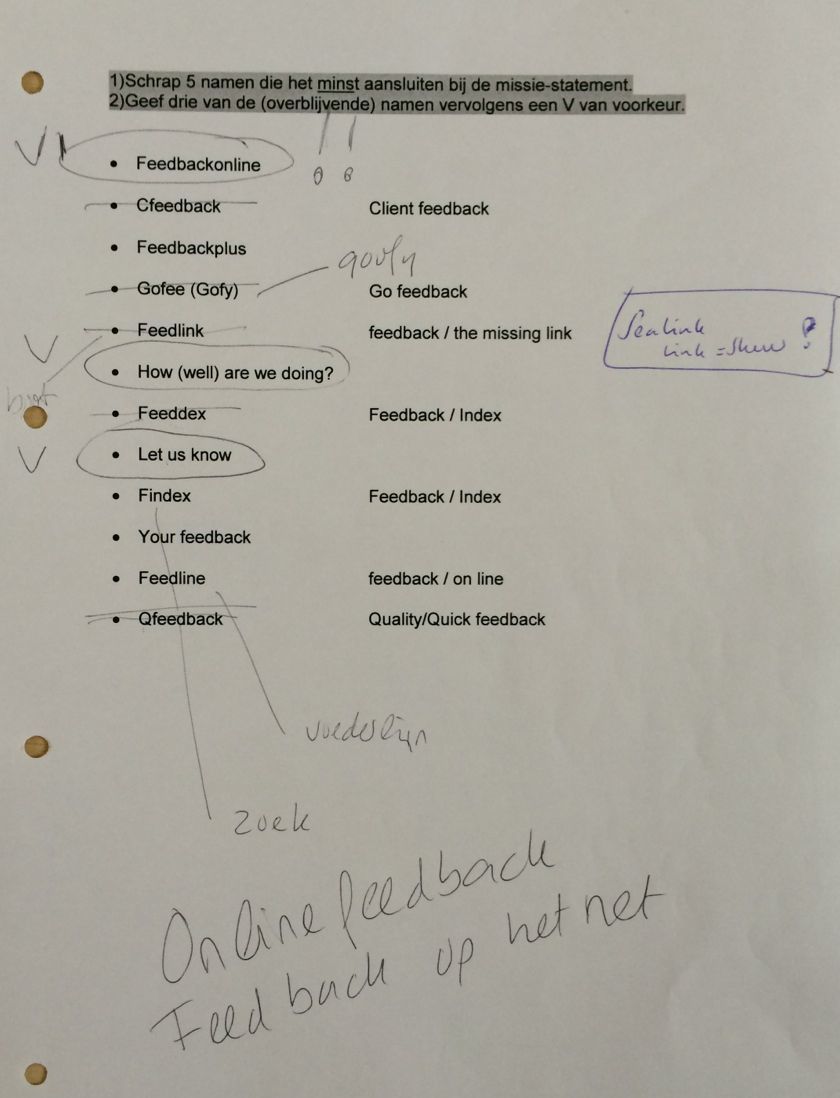 1)Schrap 5 namen die het minst aansluiten bij de missie-statement.
2)Geef drie van de (overblijvende) namen vervolgens een V van voorkeur.
V
!!
• Feedbackonline
• Cfeedback Client feedback
• Feedbackplus
goofy
• Gofee (Gofy) Go feedback
• Feedlink feedback / the missing link
Sealink
link = ?
V
• How (well) are we doing?
• Feeddex Feedback / Index
V
• Let us know
• Findex Feedback / Index
• Your feedback
• Feedline feedback / on line
• Qfeedback Quality/Quick feedback
voederlijn
zoek
Online feedback
Feedback op het net